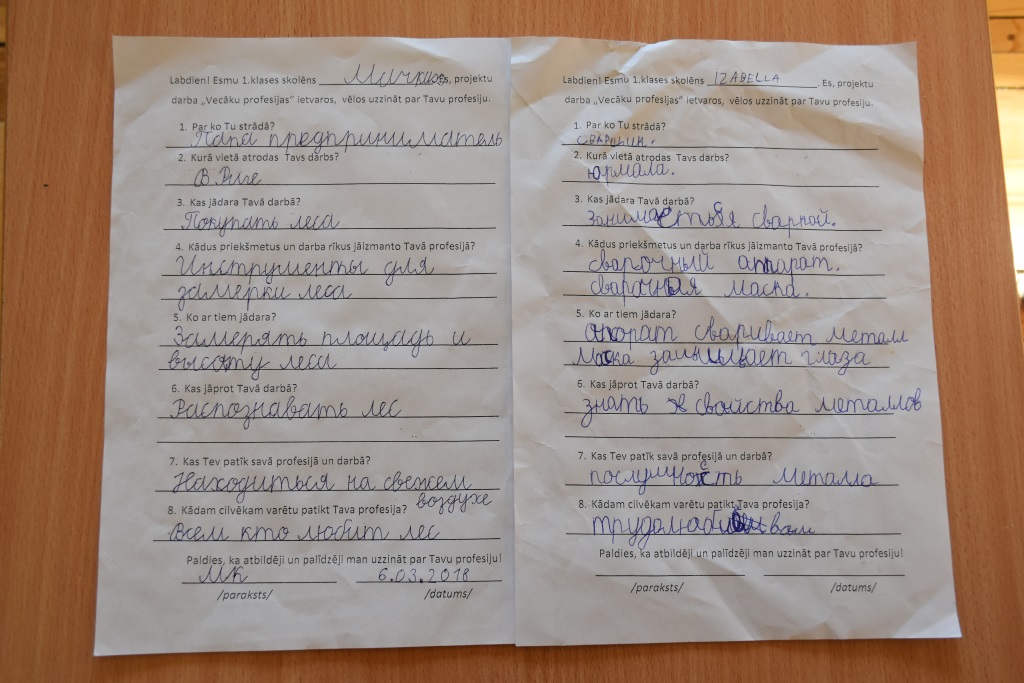 Labdien! Esmu 1.klases skolēns Es, projektu
darba „Vecāku profesijas" ietvaros, vēlos uzzināt par Tavu profesiju.
1. Par ko Tu strādā?
Папа предприниматель
2. Kurā vietā atrodas Tavs darbs?
В Риге
3. Kas jādara Tavā darbā?
Покупать леса
4. Kādus priekšmetus un darba rīkus jāizmanto Tavā profesijā?
Инструменты для
замерки леса
5. Ko ar tiem jādara?
Замерять площадь и
высоту леса
6. Kas jāprot Tavā darbā?
Распознавать лес
7. Kas Tev patīk savā profesijā un darbā?
Находиться на свежем
воздухе
8. Kādam cilvēkam varētu patikt Tava profesija?
Всем кто любит лес
Paldies, ka atbildēji un palīdzēji man uzzināt par Tavu profesiju!
МК 6.03.2018
/paraksts/ /datums/
Labdien! Esmu 1.klases skolēns IZABELLA. Es, projektu
darba „Vecāku profesijas" ietvaros, vēlos uzzināt par Tavu profesiju.
1. Par ko Tu strādā?
СВАРЩИК.
2. Kurā vietā atrodas Tavs darbs?
юрмала.
3. Kas jādara Tavā darbā?
Заниматься сваркой.
4. Kādus priekšmetus un darba rīkus jāizmanto Tavā profesijā?
сварочный аппарат.
сварочная маска.
5. Ko ar tiem jādara?
сваривает металл
Маска защищает глаза
6. Kas jāprot Tavā darbā?
знать свойства металлов
7. Kas Tev patīk savā profesijā un darbā?
послушность металла
8. Kādam cilvēkam varētu patikt Tava profesija?
Paldies, ka atbildēji un palīdzēji man uzzināt par Tavu profesiju!
/paraksts/ /datums/